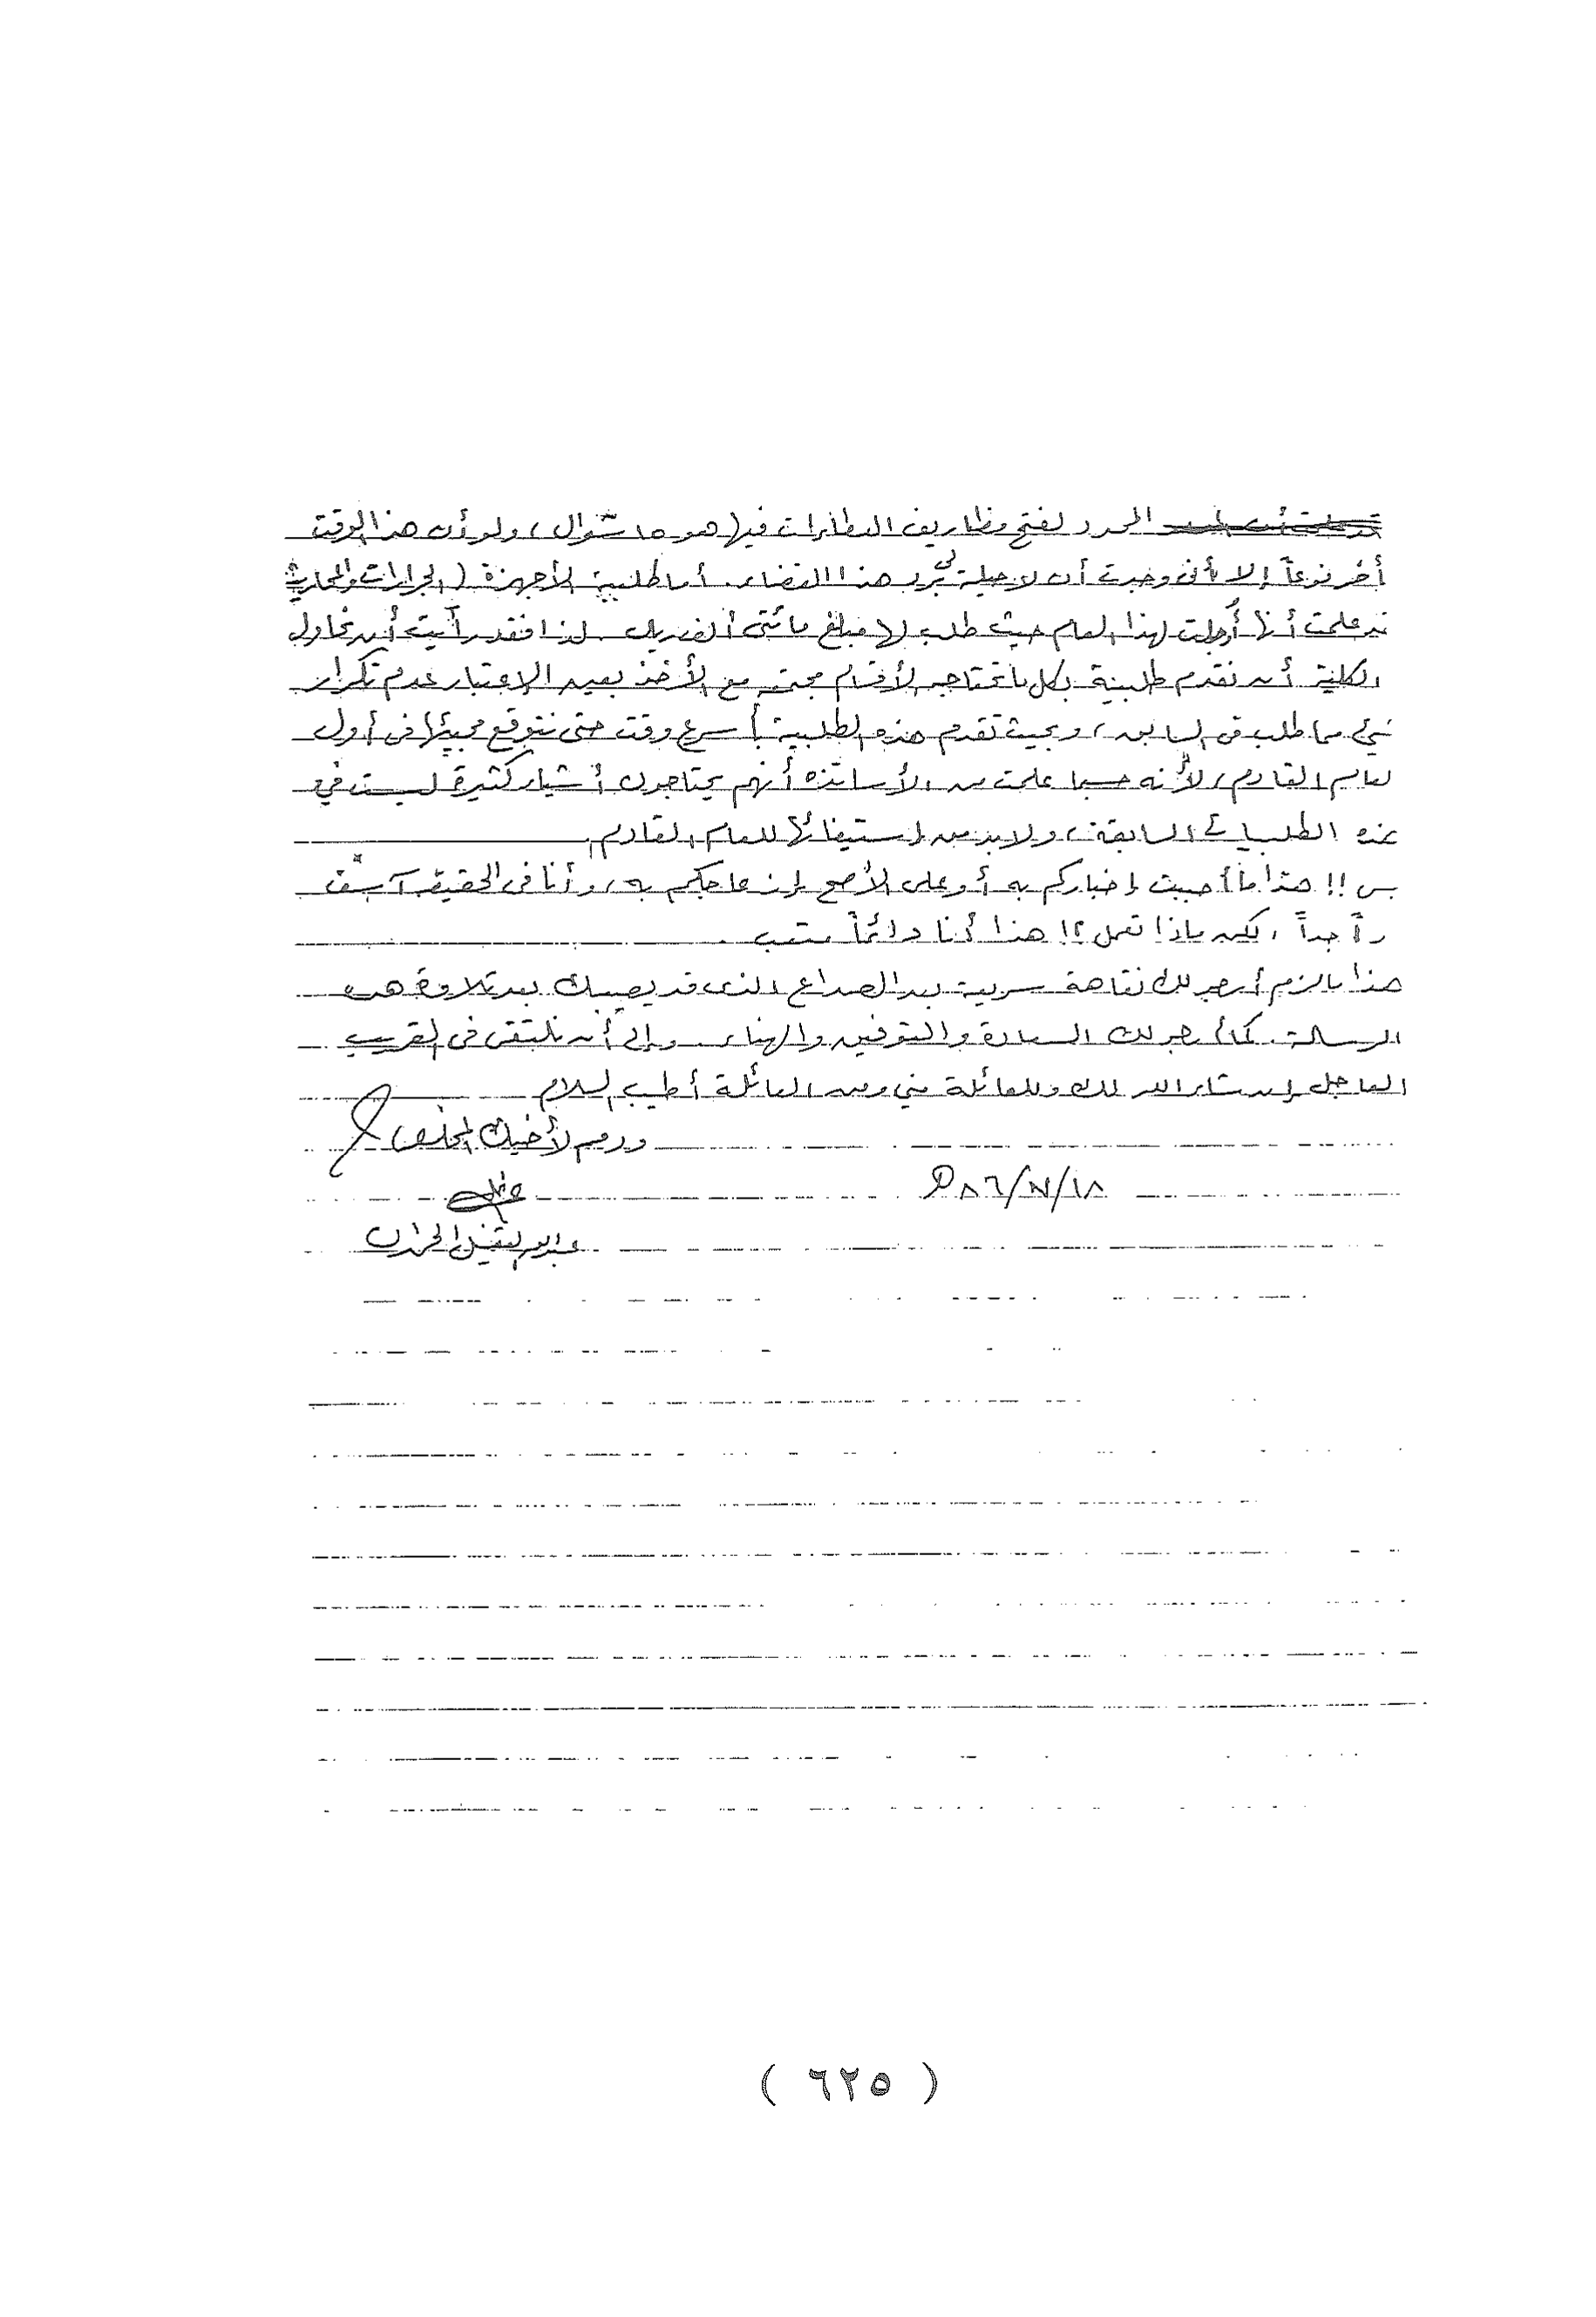 المحدد لفتح مظاريف العطاءات فيها هو ١٥ شوال، ولو أن هذا الوقت
أخر نوعاً إلا أني وجدت أن لا حيلة لي برد هذا القضاء. أما طلبية الأجهزة (الجرارات والمحاريث
قد علمت أنها أجلت لهذا العام حيث طلب لها مبلغ مائتي ألف ريال. لذا فقد رأيت أن تحاول
الكلية أن تقدم طلبية بكل ما تحتاجه الأقسام مجتمعة مع الأخذ بعين الاعتبار عدم تكرار
شيء مما طلب في السابق، وبحيث تقدم هذه الطلبية بأسرع وقت حتى نتوقع مجيئها في أول
لعام القادم، لأنه حسبما علمت من الأساتذة أنهم يحتاجون أشياء كثيرة ليست في
هذه الطلبيات السابقة، ولابد من استيفائها للعام القادم.
بس !! هذا ما أحببت إخباركم به أو على الأصح إزعاجكم به، وأنا في الحقيقة آسف
جداً، لكن ماذا تعمل ؟! هذا أنا دائماً متعب.
هذا ما لزم أرجو لك نقاهة سريعة بعد الصداع الذي قد يصيبك بعد تلاوة هذه
الرسالة. كما أرجو لك السعادة والتوفيق والهناء. وإلى أن نلتقي في القريب
العاجل إن شاء الله لك وللعائلة مني ومن العائلة أطيب السلام
ودم لأخيك المخلص
٨٦/٧/١٨ه
( ٦٢٥ )